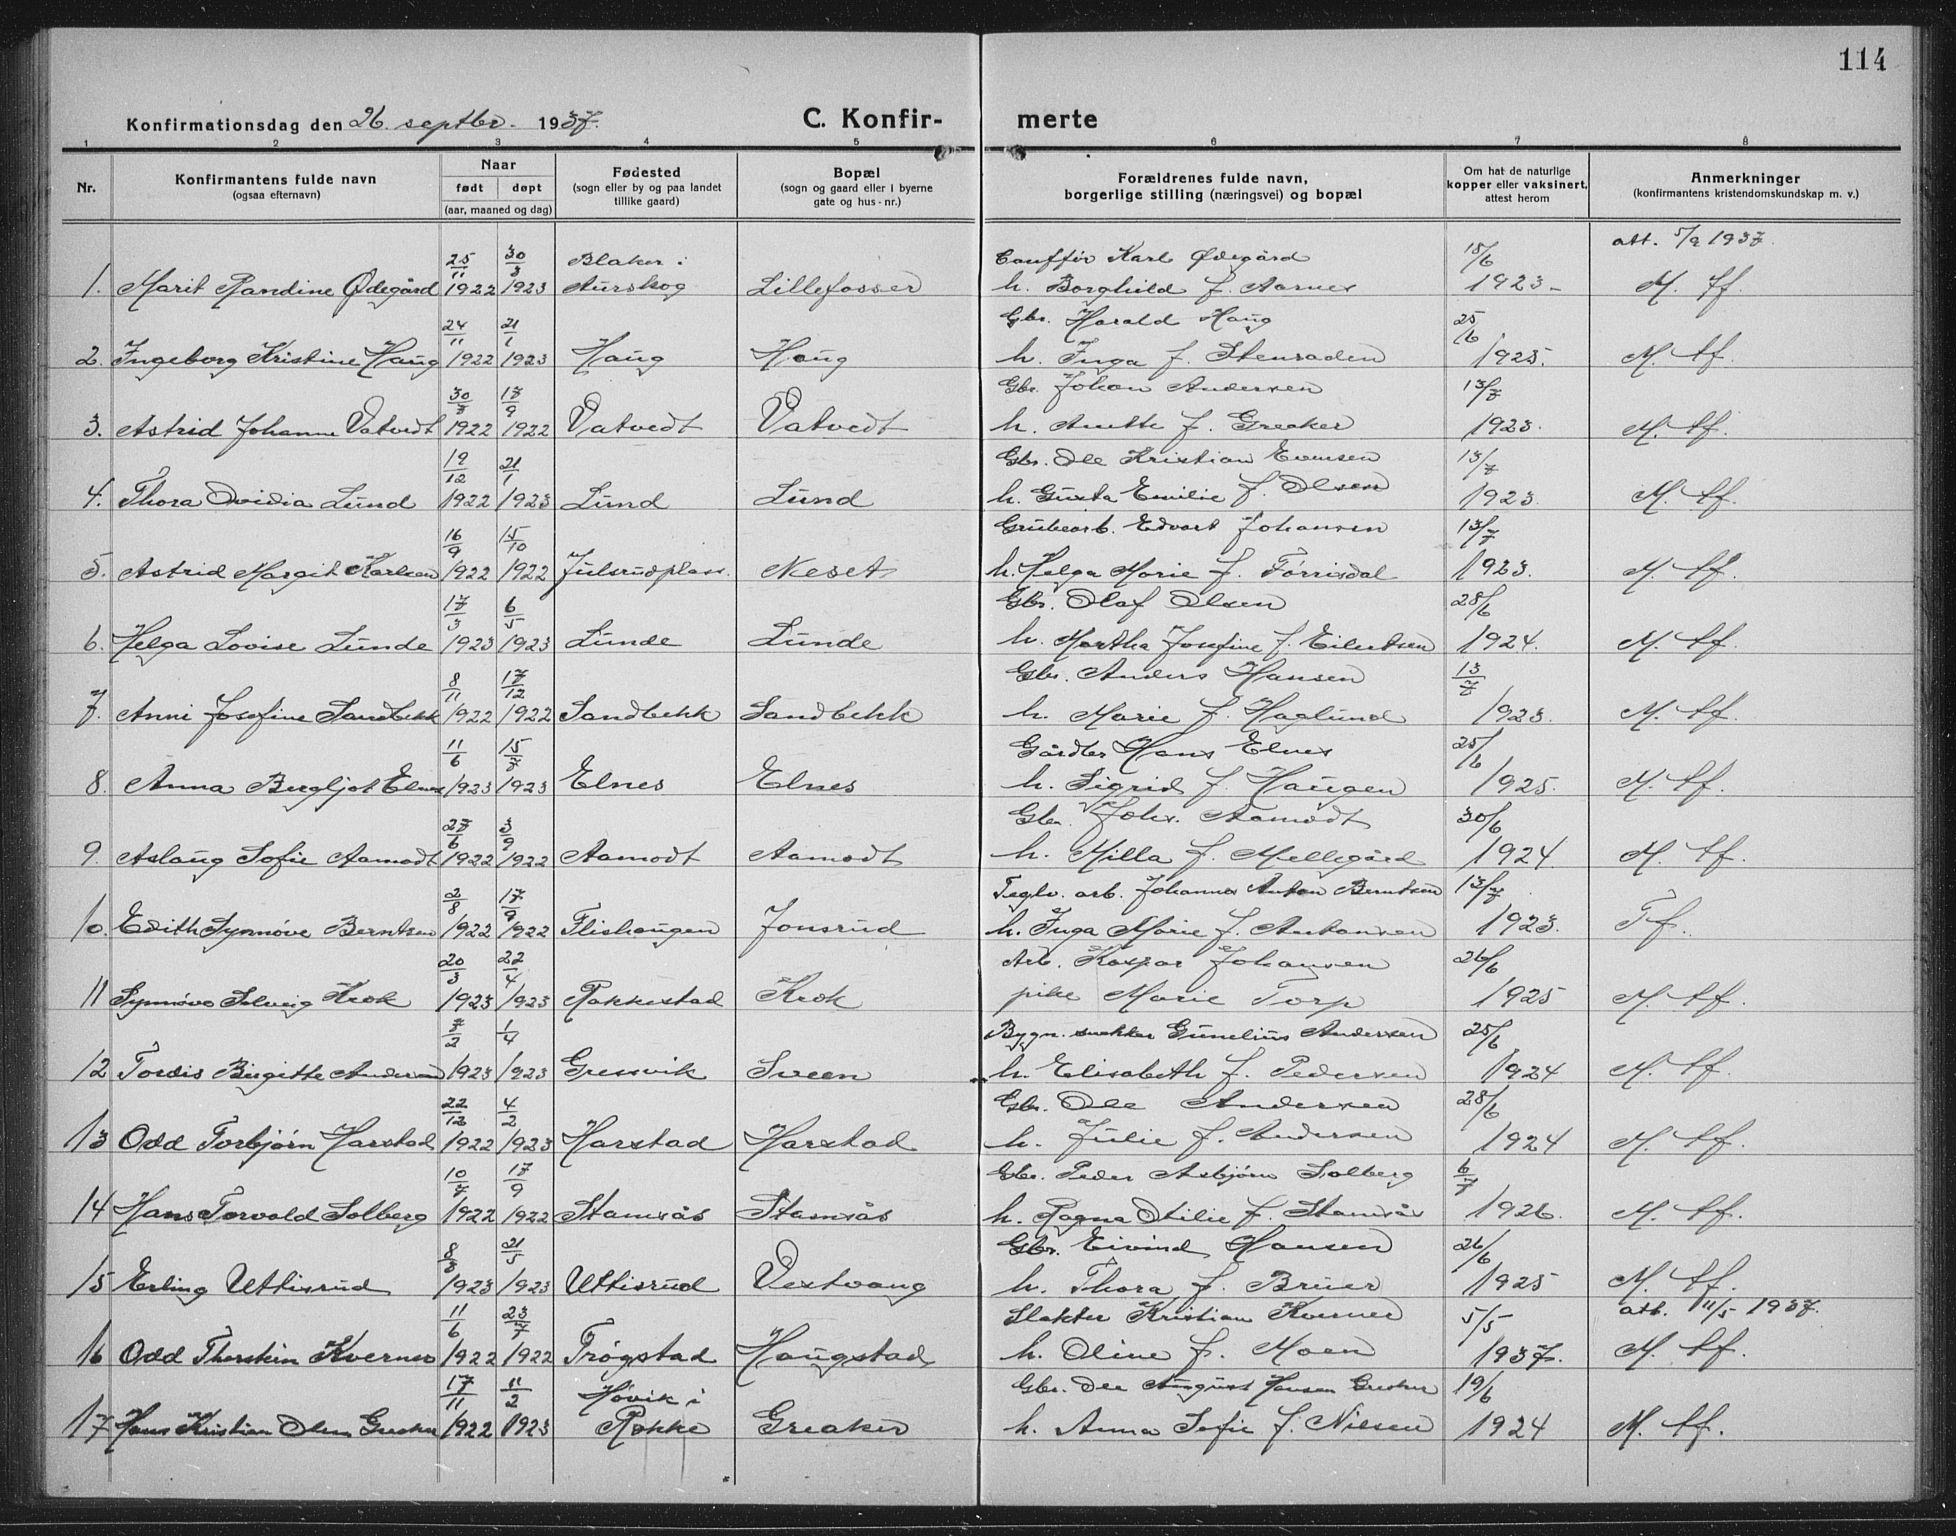 114
Konfirmationsdag den 26. septbr. 1937.
C. Konfir-merte
1 2 3 4 5 6 7 8
Nr.
Konfirmantens fulde navn
(ogsaa efternavn)
Naar
født døpt
(aar, maaned og dag)
Fødested
(sogn eller by og paa landet
tillike gaard)
Bopæl
(sogn og gaard eller i byerne
gate og hus-nr.)
Forældrenes fulde navn,
borgerlige stilling (næringsvei) og bopæl
Om hat de naturlige
kopper eller vaksinert,
attest herom
Anmerkninger
(konfirmantens kristendomskundskap m. v.)
25/11 30/3 Blaker i Cauffør Karl Ødegård 15/6 att. 5/9 1937.
1. Marit Randine Ødegård 1922 1923 Aurskog Lillefosser h. Borghild f. Aarnes 1923- M. tf.
24/11 21/1 Gbr. Harald Haug 25/6
2. Ingeborg Kristine Haug 1922 1923 Haug Haug h. Inga f. Stensraden 1925. M. tf.
30/7 17/9 Gbr. Johan Andersen 13/7
3. Astrid Johanne Vatvedt 1922 1922 Vatvedt Vatvedt h. Anette f. Greaker 1923. M. tf.
19/12 21/1 Gbr. Ole Kristian Evensen 13/7
4. Thora Ovidia Lund 1922 1923 Lund Lund h. Gusta Emilie f. Olsen 1923. M. tf.
16/9 15/10 Grubearb. Edvart Johansen 13/7
5. Astrid Margit Karlsen 1922 1922 Julsrudplass. Neset h. Helga Marie f. Tørrisdal 1923. M. tf.
17/3 6/5 Gbr. Olaf Olsen 28/6
6. Helga Lovise Lunde 1923 1923 Lunde Lunde h. Martha Josefine f. Eilertsen 1924. M. tf.
8/11 17/12 Gbr. Anders Hansen 13/7
7. Anni Josefine Sandbekk 1922 1922 Sandbekk Sandbekk h. Marie f. Haglund 1923. M. tf.
11/6 15/7 Gårdbr. Hans Elnes 25/6
8. Anna Bergljot Elnes 1923 1923 Elnes Elnes h. Sigrid f. Haugen 1925. M. tf.
27/6 3/9 Gbr. Johs. Aamodt 30/6
9. Aslaug Sofie Aamodt 1922 1922 Aamodt Aamodt h. Milla f. Mellegård 1924. M. tf.
2/8 17/9 Teglv. arb. Johannes Anton Berntsen 13/7
10. Edith Synnøve Berntsen 1922 1922 Flishaugen Jonsrud h. Inga Marie f. Antonsen 1923. Tf.
20/3 22/4 Arb. Kaspar Johansen 26/6
11 Synnøve Solveig Krok 1923 1923 Rakkestad Krok pike Marie Torp 1925 M. tf.
7/2 1/4 Bygn. snekker Gunelius Andersen 25/6
12 Tordis Birgitte Andersen 1923 1923 Gressvik Sveen h. Elisabeth f. Pedersen 1924 M. tf.
22/12 4/2 Gbr. Ole Andersen 28/6
13 Odd Torbjørn Harstad 1922 1923 Harstad Harstad h. Julie f. Andersen 1924 M. tf.
10/7 17/9 Gbr. Peder Asbjørn Solberg 6/7
14 Hans Torvald Solberg 1922 1922 Stamsås Stamsås h. Ragna Otilie f. Stamsås 1926. M. tf.
8/3 21/5 Gbr. Eivind Hansen 26/6
15 Erling Uttisrud 1923 1923 Uttisrud Vestvang h. Thora f. Bruer 1925 M. tf.
11/6 23/7 Slakter Kristian Kverner 5/5 att. 11/5 1937.
16 Odd Thorstein Kverner 1922 1922 Trøgstad Haugstad h. Oline f. Moen 1937. M. tf.
17/11 11/2 Høvik i Gbr. Ole August Hansen Greaker 19/6
17 Hans Kristian Olsen Greaker 1922 1923 Rakke Greaker h. Anna Sofie f. Nilsen 1924 M. tf.